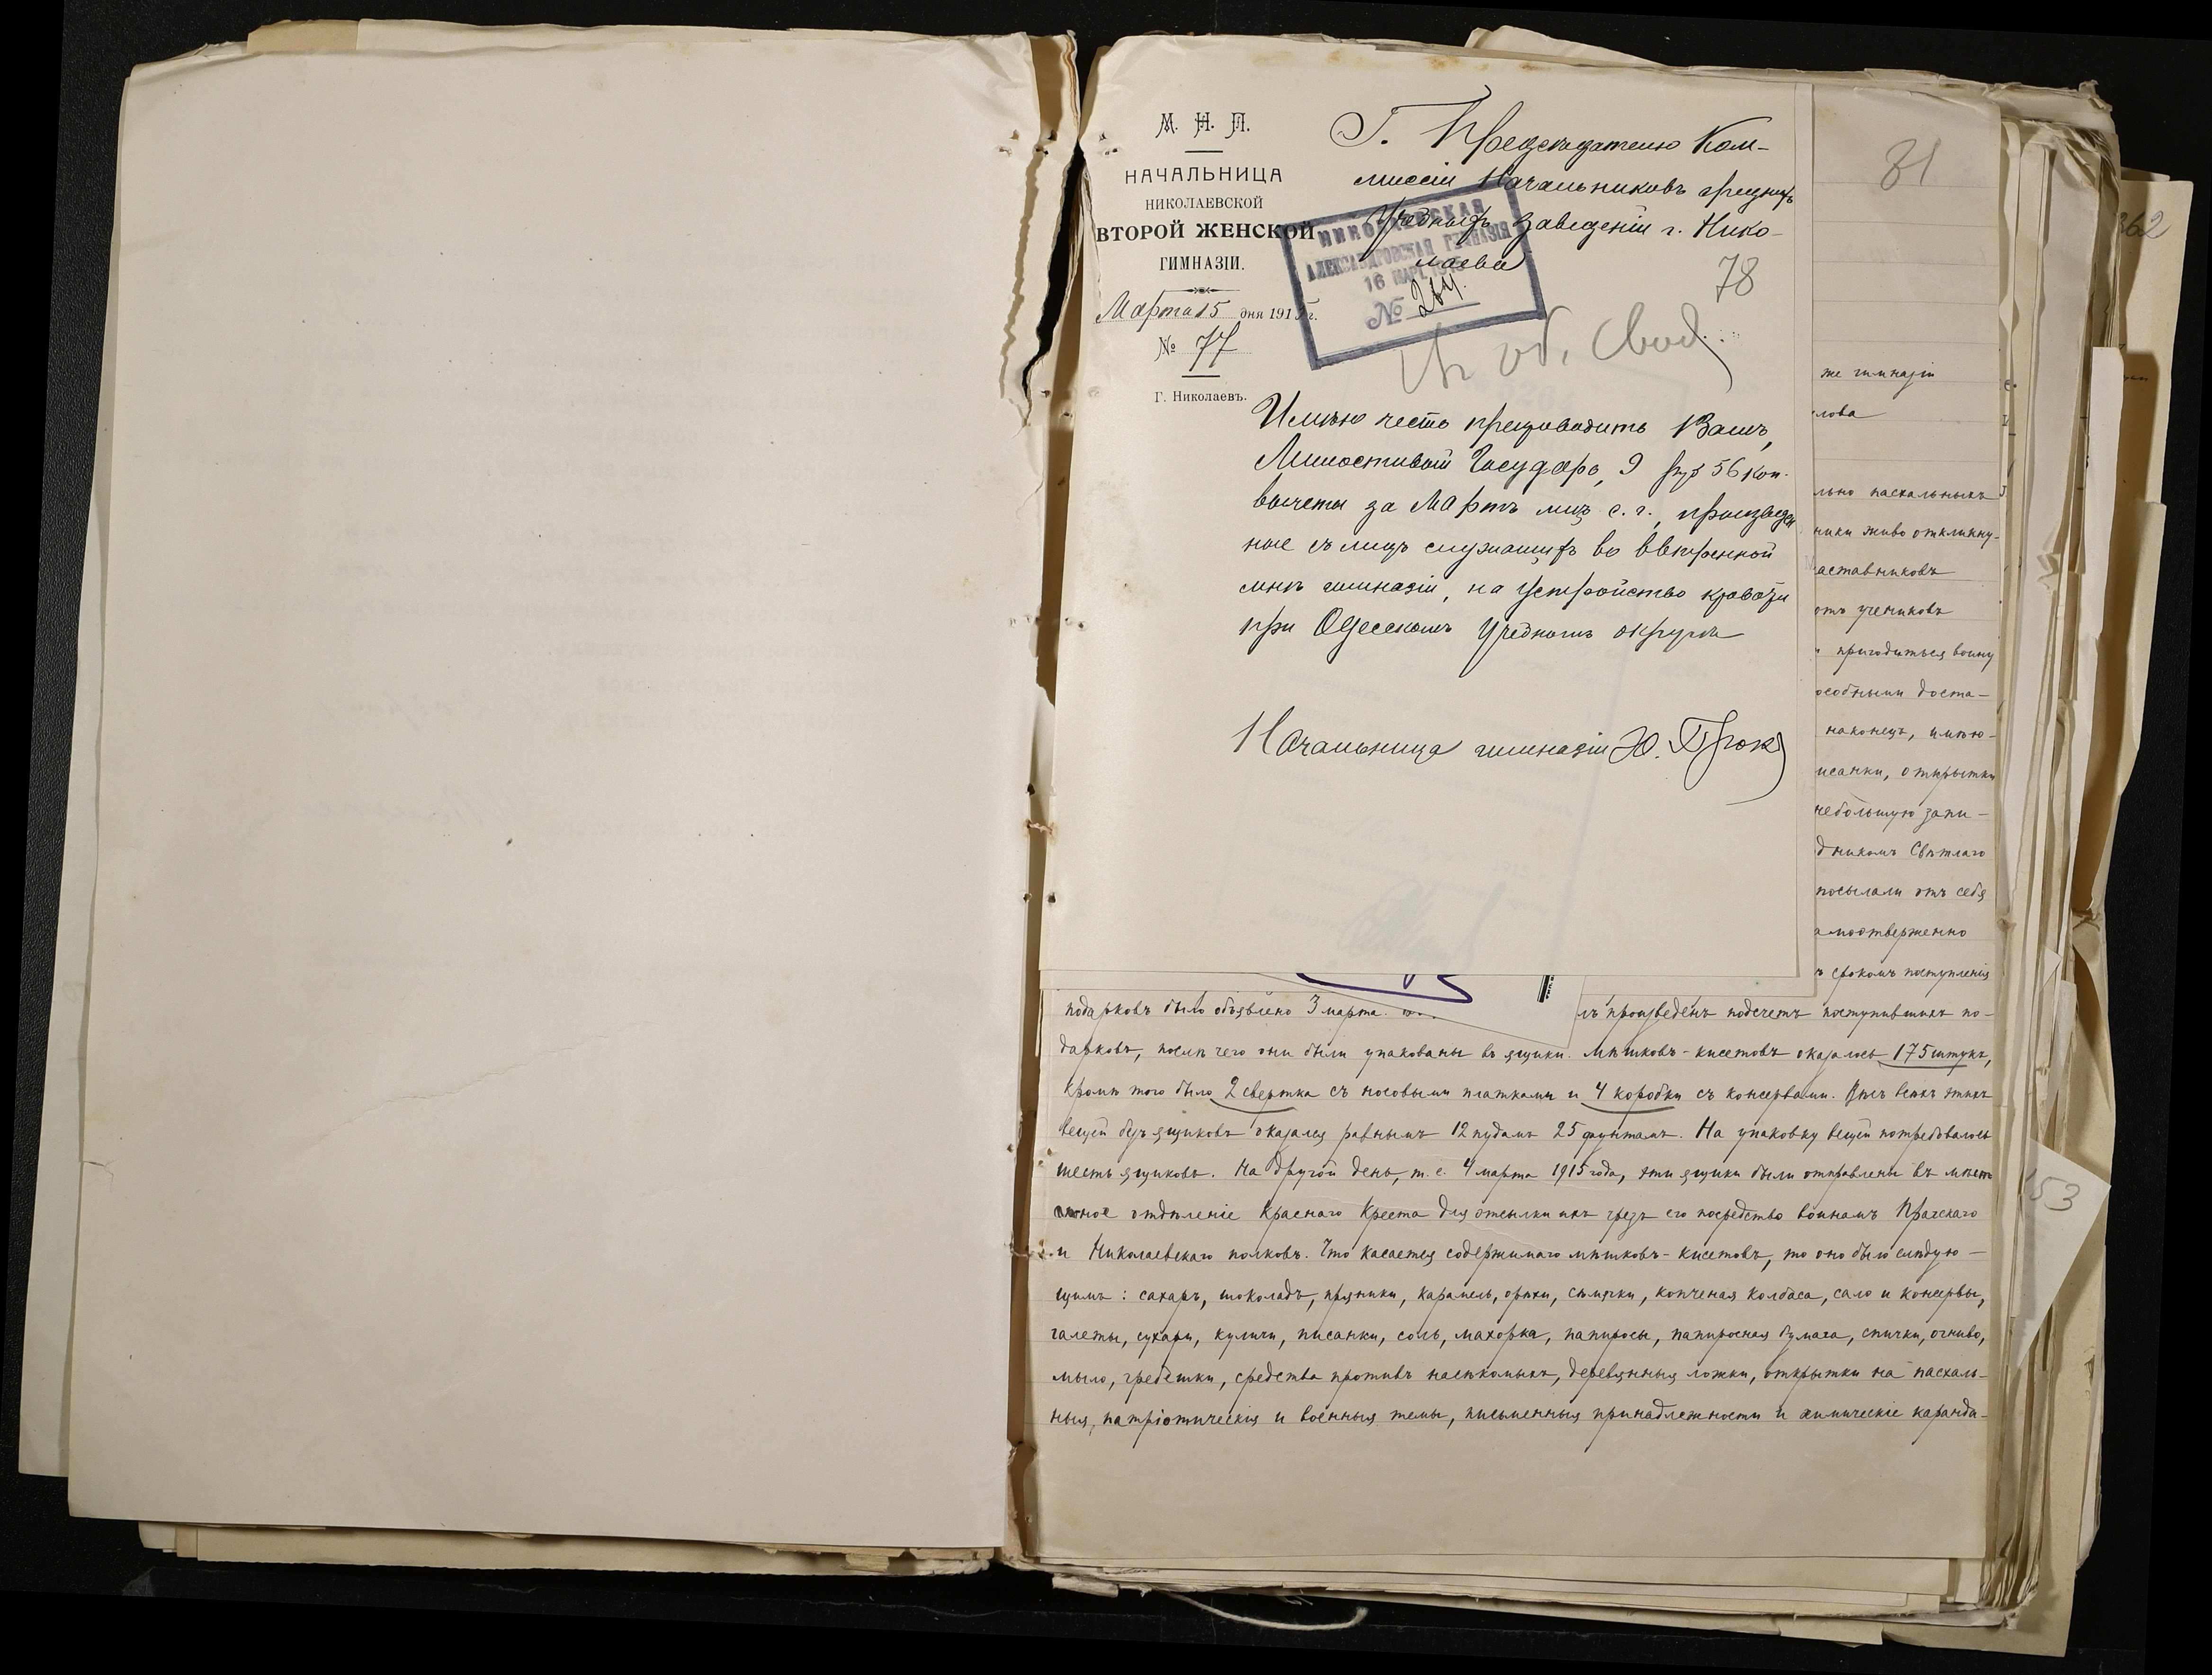 М. Н. П.
НАЧАЛЬНИЦА
НИКОЛАЕВСКОЙ
ВТОРОЙ ЖЕНСКОЙ
ГИМНАЗІИ.
Марта 15 дня 1915 г.
№ 77
Г. Николаевъ.
Г. Предсѣдателю Ком-
миссіи Начальниковъ средних
Учебныхъ Заведеній г. Нико-
лаева
НИКОЛАЕВСКАЯ
АЛЕКСАНДРОВСКАЯ ГИМНАЗІЯ
16 МАРТ. 1915
№ 264.
78
Имѣю честь препроводить Вамъ,
Милостивый Государь, 9 руб 56 коп.
вычеты за Мартъ мцъ с. г., произведен
ные съ лицъ служащихъ во ввѣренной
мнѣ гимназіи, на устройство кровати
при Одесскомъ Учебномъ округѣ
Начальница гимназіи Ю.
81
же гимназіи
лова
льно пасхальныхъ
ники живо откликну-
аставниковъ
отъ учениковъ
пригодиться воину
особными доста-
наконецъ, имѣю-
исанки, открытки
небольшую запи-
дникомъ Свѣтлаго
посылали отъ себя
амоотверженно
срокомъ поступленія
подарковъ было объявлено 3 марта.
лъ произведенъ подсчетъ поступившихъ по-
дарковъ, послѣ чего они были упакованы въ ящики. Мѣшковъ-кисетовъ оказалось 175 штукъ,
кромѣ того было 2 свертка съ носовыми платками и 4 коробки съ консервами. Вѣсъ всѣхъ этихъ
вещей безъ ящиковъ оказался равнымъ 12 пудамъ 25 фунтамъ. На упаковку вещей потребовалось
шесть ящиковъ. На другой день, т. е. 4 марта 1915 года, эти ящики были отправлены въ мѣст
ное отдѣленіе Краснаго Креста для отсылки ихъ чрезъ его посредство воинамъ Прагскаго
и Николаевскаго полковъ. Что касается содержимаго мѣшковъ-кисетовъ, то оно было слѣдую-
щимъ: сахаръ, шоколадъ, пряники, карамель, орѣхи, сѣмячки, копченая колбаса, сало и консервы,
галеты, сухари, куличи, писанки, соль, махорка, папиросы, папиросная бумага, спички, огниво,
мыло, гребешки, средства противъ насѣкомыхъ, деревянныя ложки, открытки на пасхаль-
ныя, патріотическія и военныя темы, письменныя принадлежности и химическіе каранда-
362
153